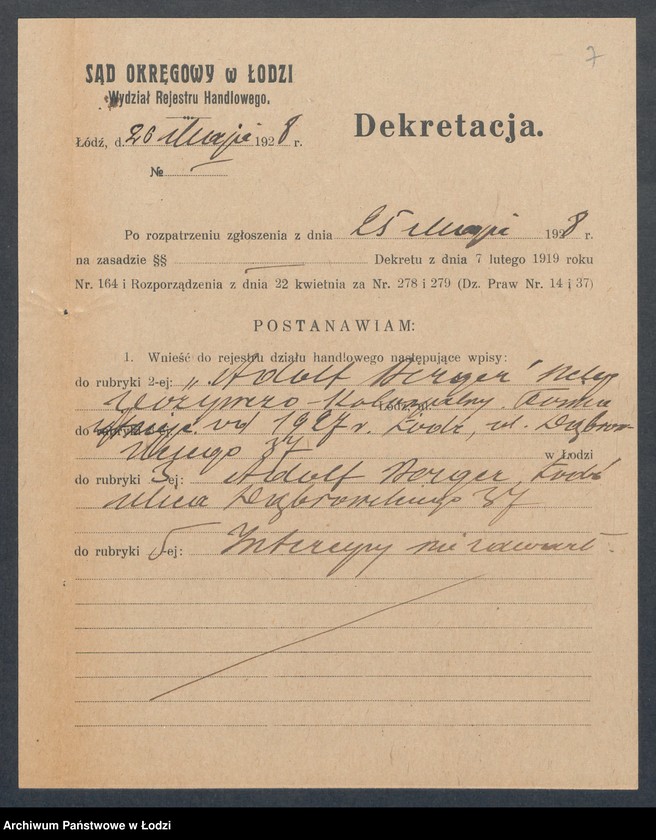 7
SĄD OKRĘGOWY w ŁODZI
Wydział Rejestru Handlowego.
Dekretacja.
Łódź, d. 26 Maja 1928 r.
№
Po rozpatrzeniu zgłoszenia z dnia 25 Maja 1928 r.
na zasadzie §§ Dekretu z dnia 7 lutego 1919 roku
Nr. 164 i Rozporządzenia z dnia 22 kwietnia za Nr. 278 i 279 (Dz. Praw Nr. 14 i 37)
POSTANAWIAM:
1. Wnieść do rejestru działu handlowego następujące wpisy:
do rubryki 2-ej: „Adolf Berger” sklep
spożywczo-kolonjalny. Firma
istnieje od 1927 r. Łódź, ul. Dąbrow-
skiego 37
w Łodzi
do rubryki 3-ej: Adolf Berger, Łódź
ulica Dąbrowskiego 37
do rubryki 5-ej: Intercyzy nie zawarł.
Archiwum Państwowe w Łodzi